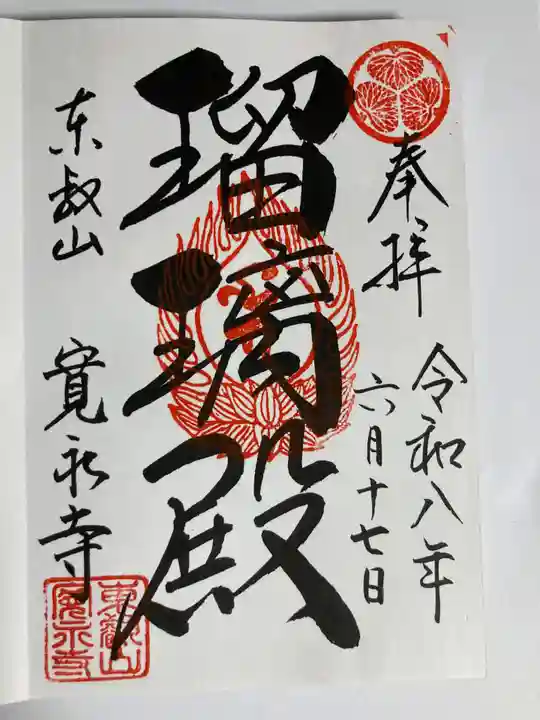 奉拝
令和八年
六月十七日
瑠璃殿
東叡山
寛永寺
東叡山
寛永寺